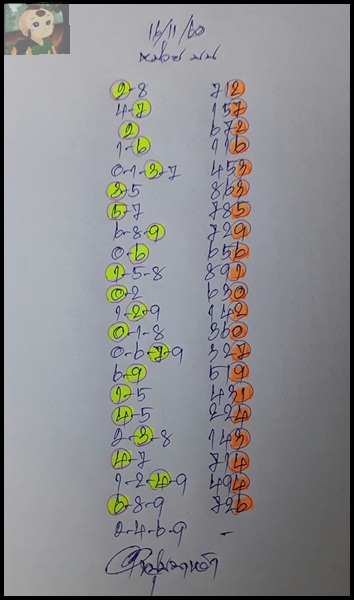 16/11/60
2-8 712
4-7 157
2 672
1-6 116
0-1-3-7 453
3-5 863
5-7 785
6-8-9 729
0-6 656
1-5-8 891
0-2 630
1-2-9 142
0-1-8 360
0-6-7-9 327
6-9 519
1-5 431
4-5 224
2-3-8 143
4-7 714
1-2-4-9 494
6-8-9 726
2-4-6-9 -